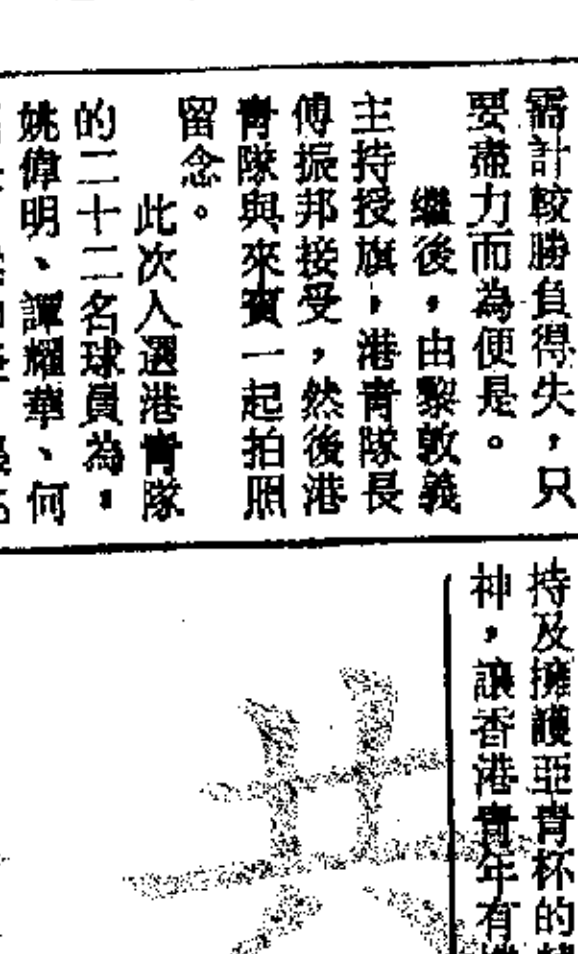 需計較勝負得失，只
要盡力而為便是。
繼後，由黎敦義
主持授旗，港青隊長
傅振邦接受，然後港
青隊與來賓一起拍照
留念。
此次入選港青隊
的二十二名球員為：
姚偉明、譚耀華、何
持及擁護亞青杯的
神，讓香港青年有